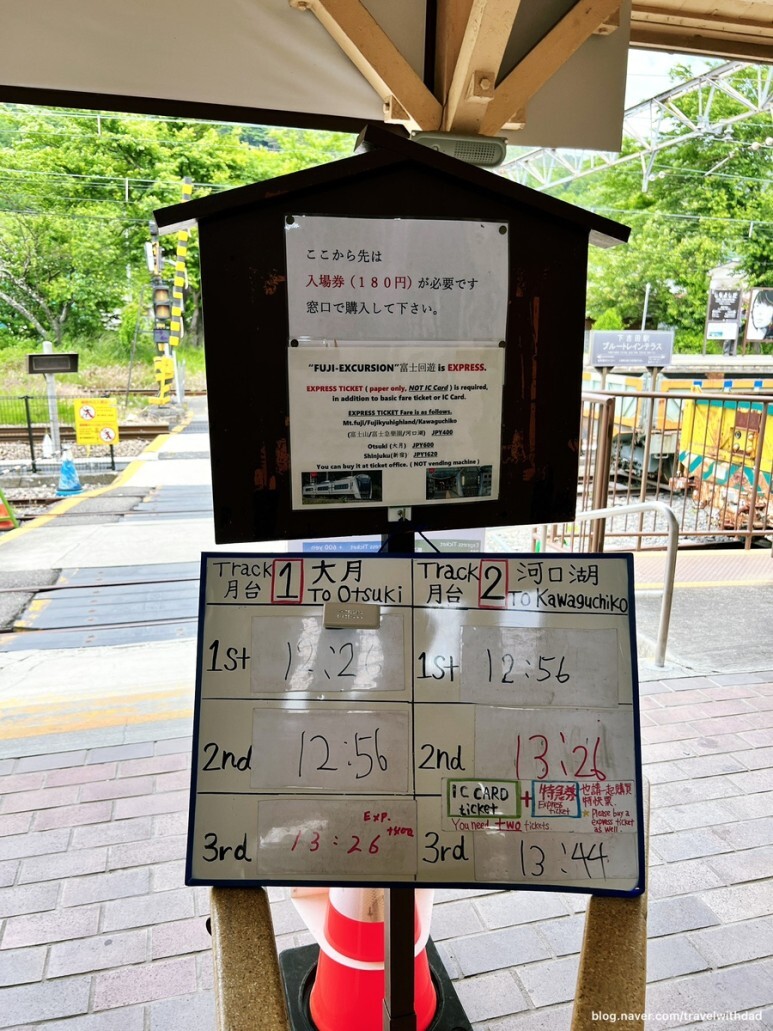 ここから先は
入場券（180円）が必要です
窓口で購入して下さい。
"FUJI-EXCURSION"富士回遊 is EXPRESS.
EXPRESS TICKET ( paper only, NOT IC Card ) is required,
in addition to basic fare ticket or IC Card.
EXPRESS TICKET Fare is as follows.
Mt.fuji/Fujikyuhighland/Kawaguchiko
(富士山/富士急樂園/河口湖) JPY400
Otsuki (大月) JPY600
Shinjuku(新宿) JPY1620
You can buy it at ticket office. ( NOT vending machine )
下吉田駅
ブルートレインテラス
Track 月台 1 大月 To Otsuki
1st 12:26
2nd 12:56
3rd 13:26 Exp.
Track 月台 2 河口湖 To Kawaguchiko
1st 12:56
2nd 13:26
IC CARD ticket + 特急券 Express ticket
也請一起購買特快票.
Please buy a express ticket as well.
You need two tickets.
3rd 13:44
blog.naver.com/travelwithdad